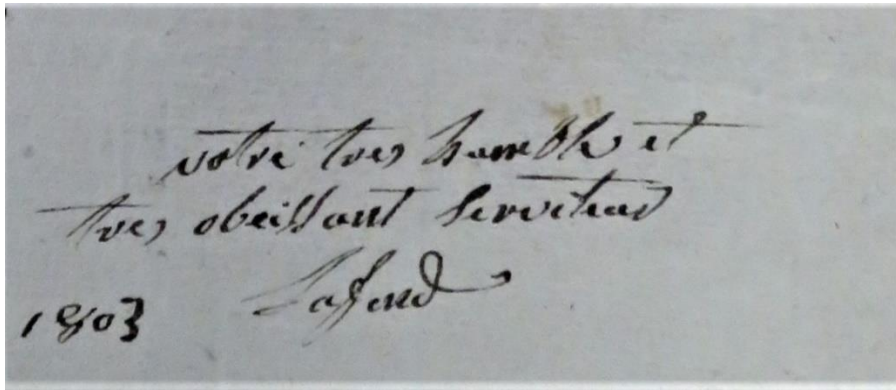 votre tres humble et
tres obeissant serviteur
Lafond
1803